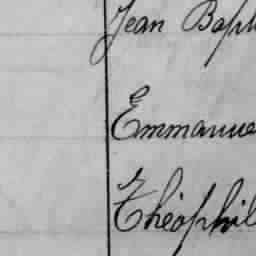 Jean Bapt
Emmanue
Théophil